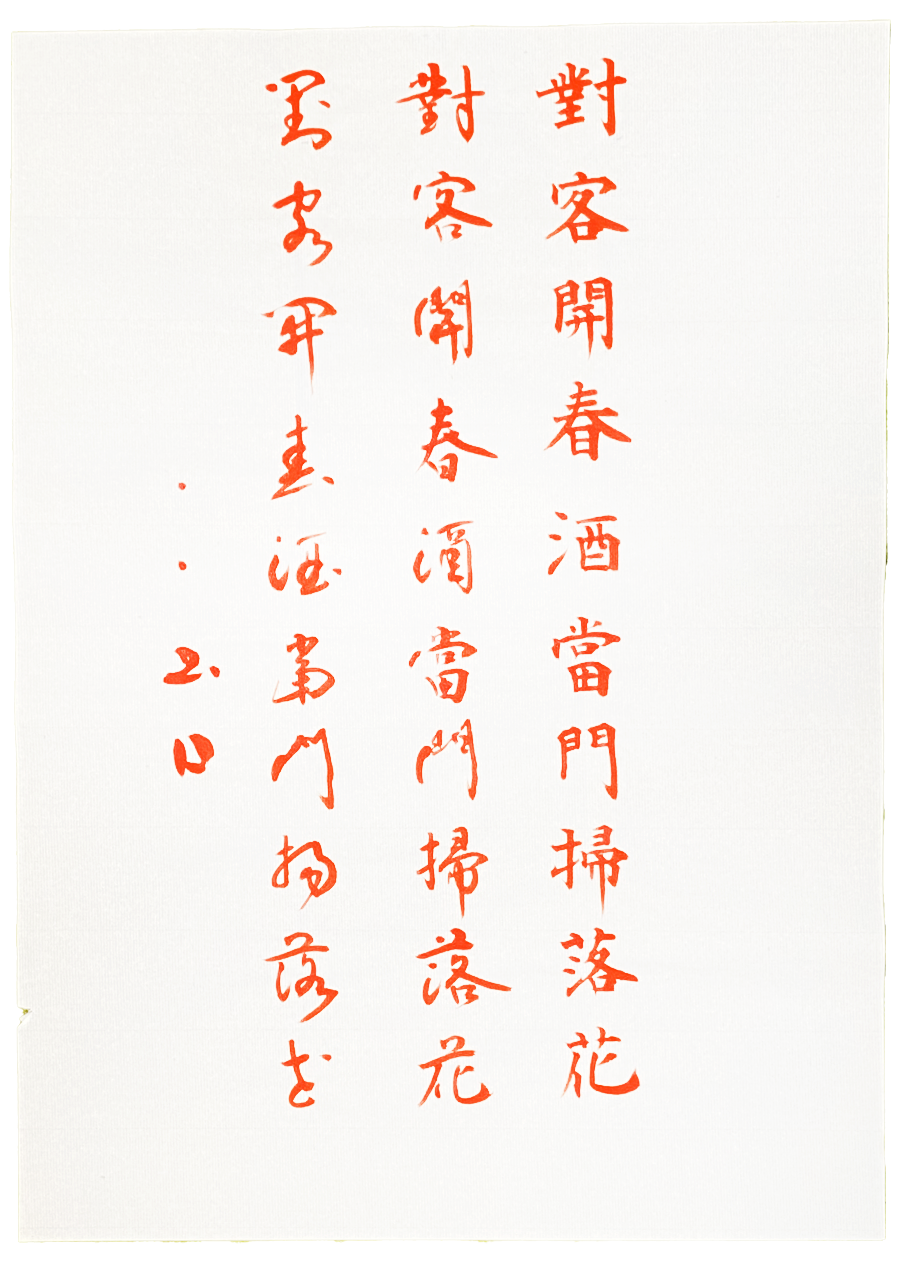 對客開春酒當門掃落花
對客開春酒當門掃落花
對客開春酒當門掃落花